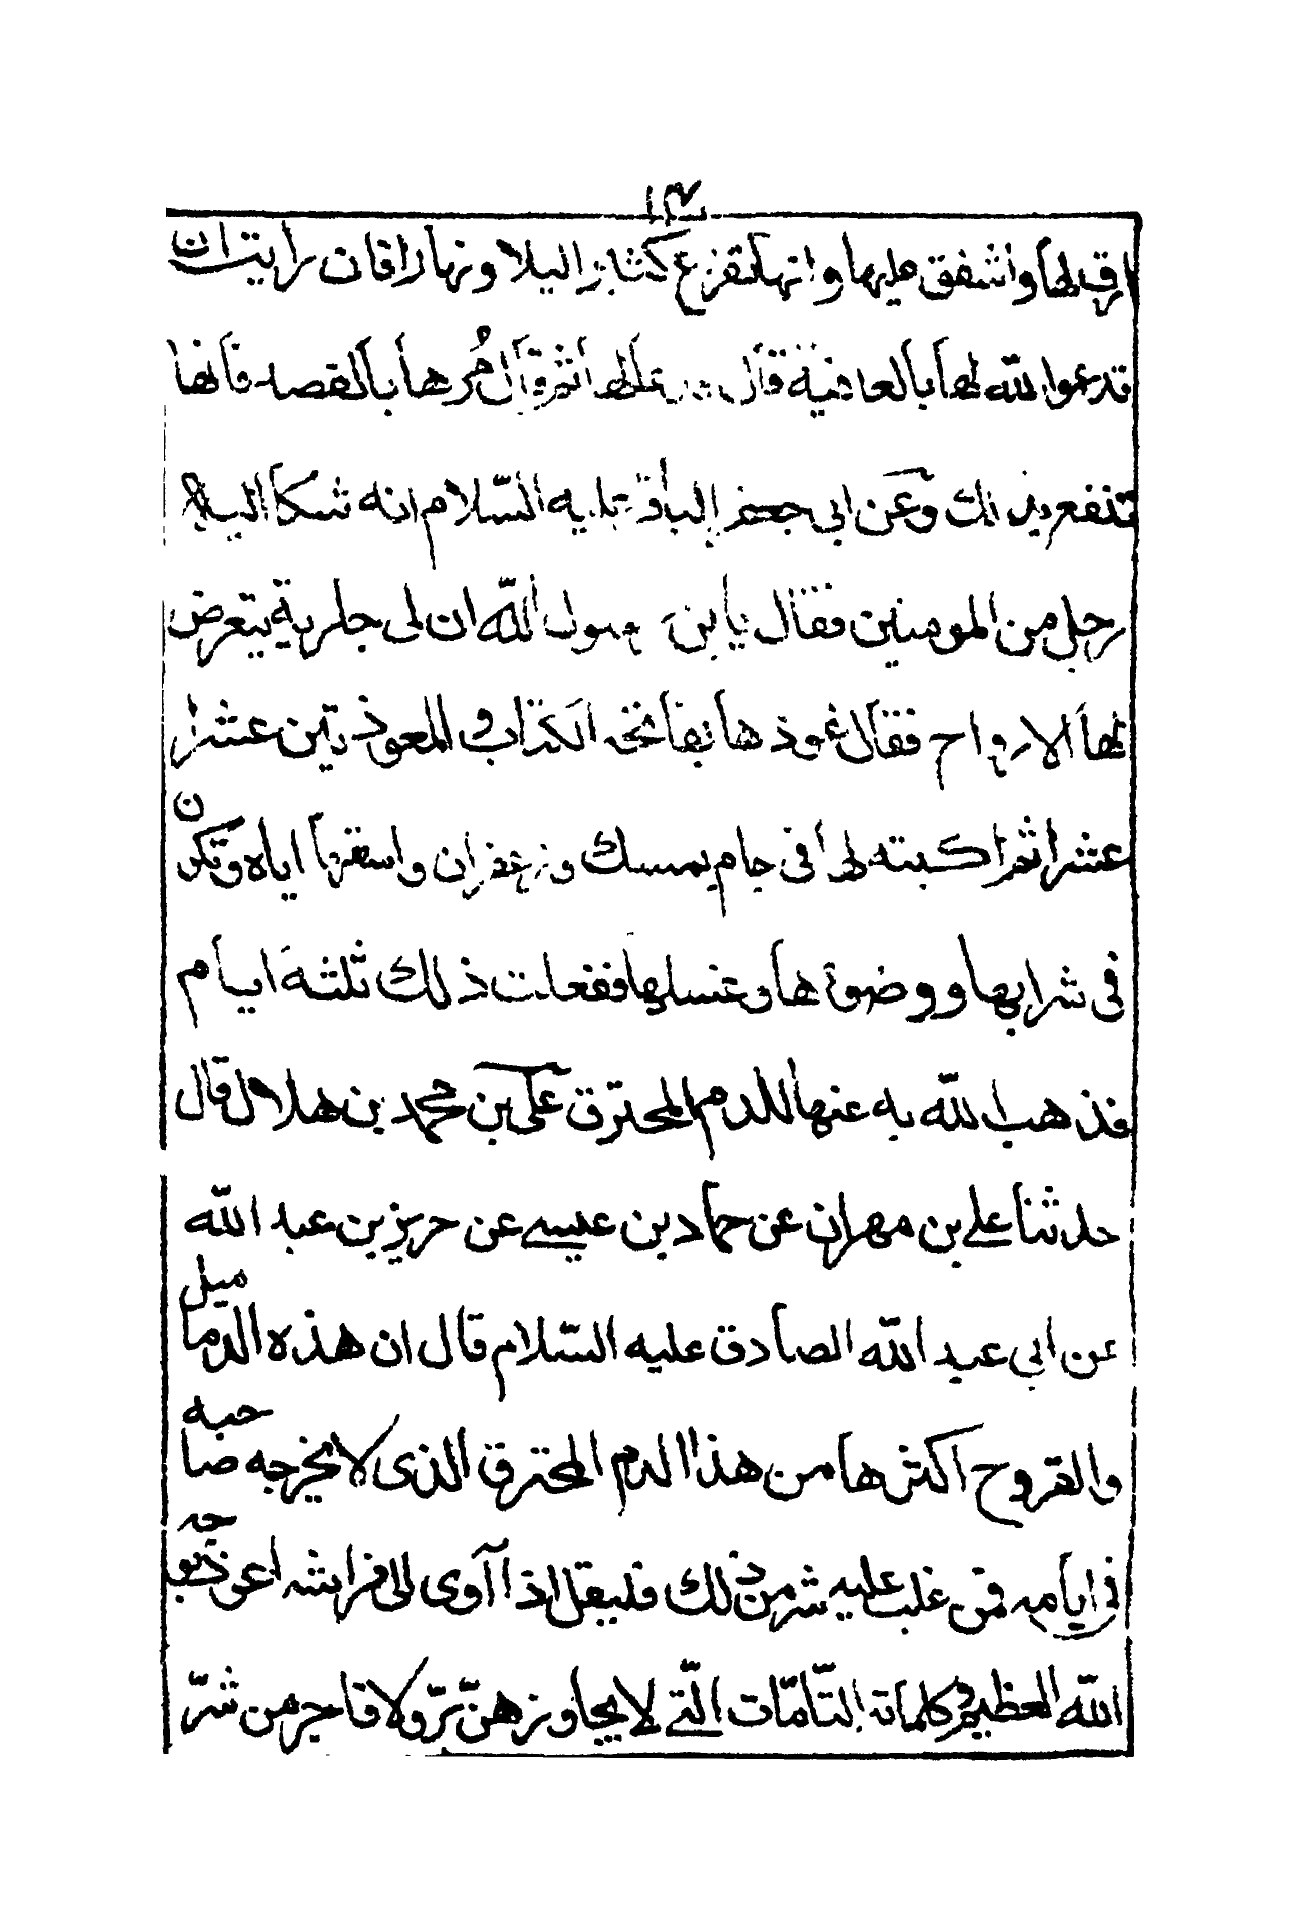 ارق لها واشفق عليها وانها تفزع كثيرا ليلا ونهارا فان رايت ان
تدعوا لله لها بالعافية قال فدعا لها ثم قال مرها بالفصد فانها
تنفع بذلك وعن ابى جعفر الباقر عليه السلام انه شكا اليه
رجل من المومنين فقال يا بن رسول الله ان لى جارية يتعرض
لها الارواح فقال عوذها بفاتحة الكتاب والمعوذتين عشرا
عشرا ثم اكتبه لها فى جام بمسك وزعفران واسقها اياه وتكون
فى شرابها ووضوئها وغسلها ففعلت ذلك ثلثة ايام
فذهب الله به عنها للدم المحترق على بن محمد بن هلال قال
حدثنا على بن مهران عن حماد بن عيسى عن حريز بن عبد الله
عن ابى عبد الله الصادق عليه السلام قال ان هذه الدماميل
والقروح اكثرها من هذا الدم المحترق الذى لا يخرجه صاحبه
فى ايامه فمن غلب عليه شر من ذلك فليقل اذا آوى الى فراشه اعوذ بوجه
الله العظيم وكلماته التامات التى لا يجاوزهن بر ولا فاجر من شر